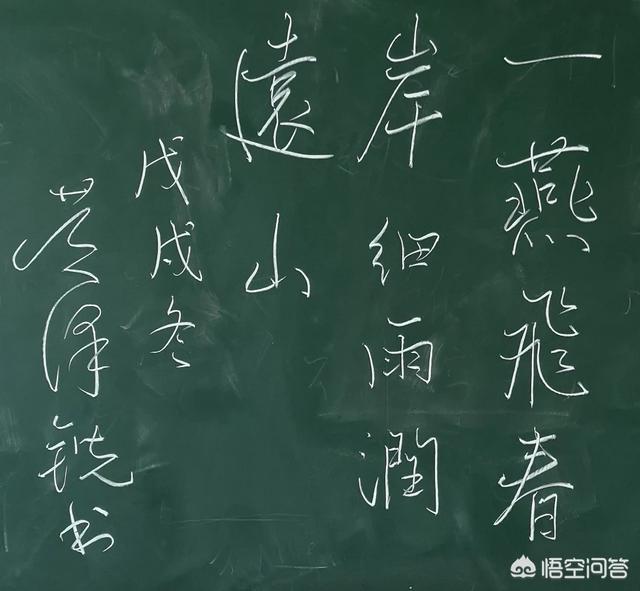 一燕飛春
岸細雨潤
遠山
戊戌冬
黄澤锐书
悟空问答